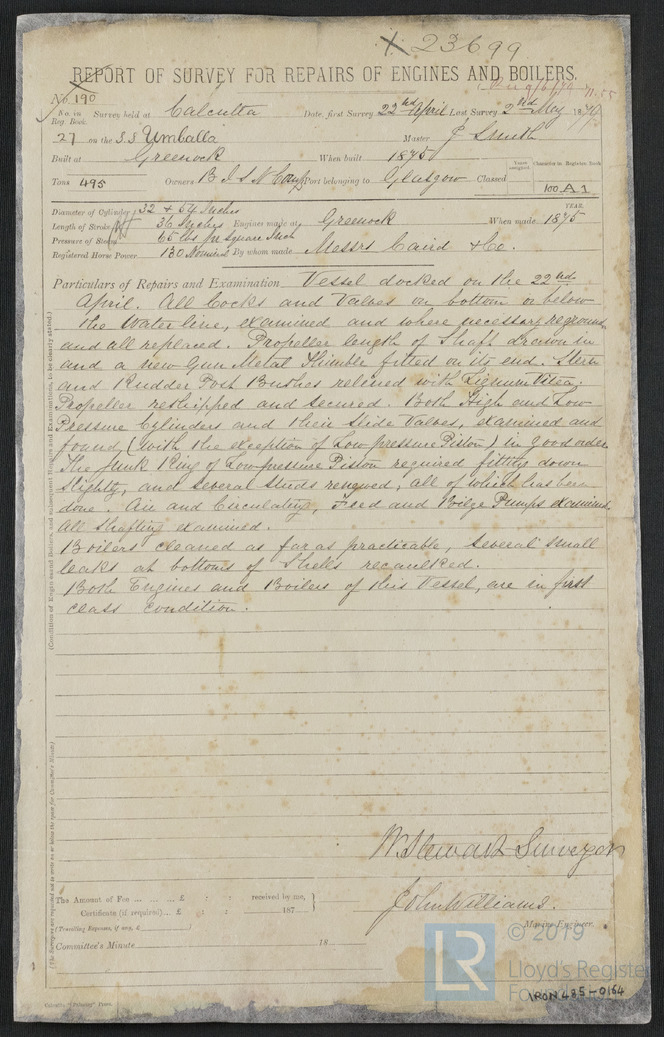 23699
REPORT OF SURVEY FOR REPAIRS OF ENGINES AND BOILERS.
No. 190
No. in Reg. Book Survey held at Calcutta Date, first Survey 22nd April Last Survey 2nd May 187
27 on the S.S Umballa Master J Smith
Built at Greenock When built 1875
Tons 495 Owners B I S N Comp Port belonging to Glasgow Classed
Years assigned. Character in Register Book
100 A 1
Diameter of Cylinder 32 + 54 Inches YEAR.
Length of Stroke 36 Inches Engines made at Greenock When made 1875
Pressure of Steam 65 lbs per Square Inch
Registered Horse Power 130 Nominal By whom made Messrs Caird & Co.
Particulars of Repairs and Examination Vessel docked on the 22nd
April. All Cocks and Valves on bottom or below
the Water line, examined and where necessary reground
and all replaced. Propeller length of Shaft drawn in
and a new Gun Metal Thimble fitted on its end. Stern
and Rudder Post Bushes relined with Lignum Vitea.
Propeller reshipped and secured. Both High and Low
Pressure Cylinders and their Slide Valves, examined and
found (with the exception of Low pressure Piston) in good order.
The Junk Ring of Low pressure Piston required fitting down
Slightly, and several Studs renewed, all of which has been
done. Air and Circulating, Feed and Bilge Pumps examined.
All Shafting examined.
Boilers cleaned as far as practicable, several small
leaks at bottoms of Shells recaulked.
Both Engines and Boilers of this Vessel, are in first
class condition.
(Condition of Engines and Boilers, and subsequent Repairs and Examinations, to be clearly stated.)
W. Stewart Surveyor
The Amount of Fee ... ... ... £ : : received by me,
Certificate (if required) ... £ : : 187
(Travelling Expenses, if any, £ )
John Williams.
Marine Engineer.
Committee's Minute 18
(The Surveyors are requested not to write on or below the space for Committee's Minute.)
© 2019
LR
Lloyd's Register
Foundation
IRON 485-0164